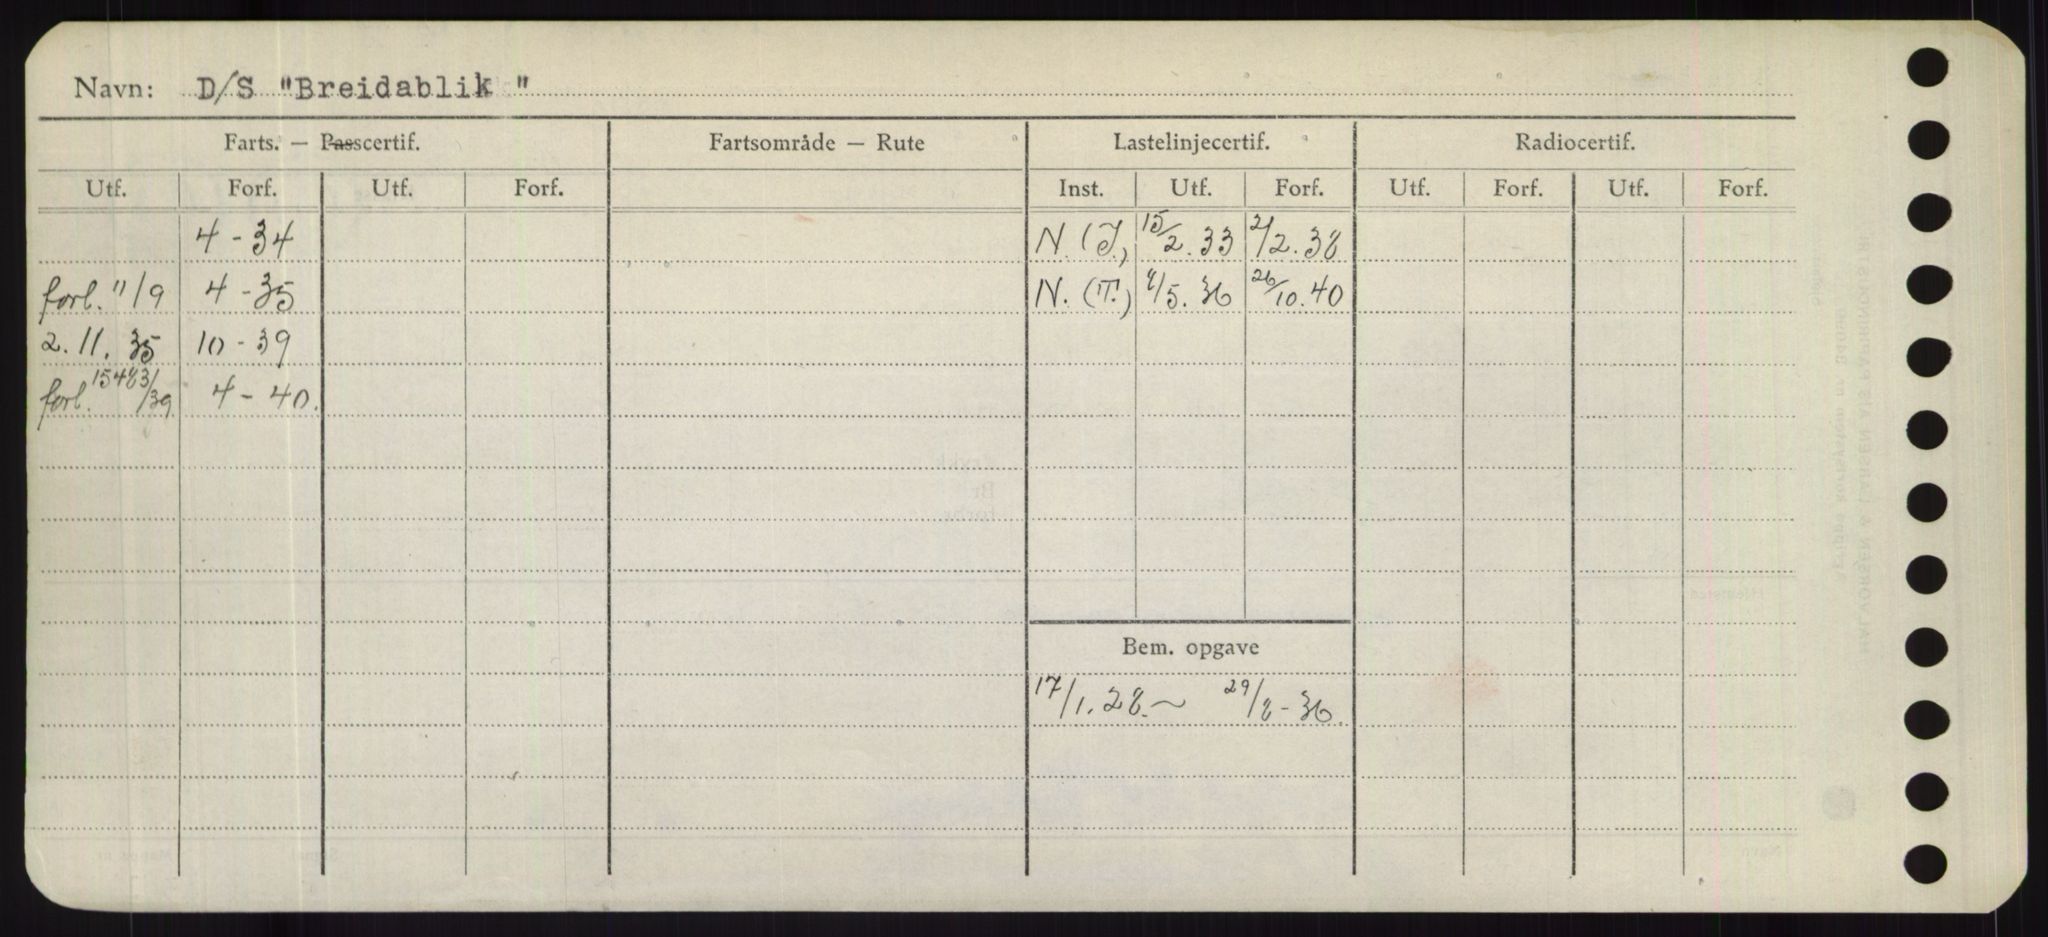 Navn: D/S "Breidablik"
Farts. — Passcertif. Fartsområde — Rute Lastelinjecertif. Radiocertif.
Utf. Forf. Utf. Forf. Inst. Utf. Forf. Utf. Forf. Utf. Forf.
4 - 34 N. (T.) 15/2. 33 2/2. 38
forl. 11/9 4 - 35 N. (T.) 8/5. 36 26/10. 40
2. 11. 35 10 - 39
forl. /39 4 - 40.
Bem. opgave
17/1. 28. ~ 29/8 - 36.